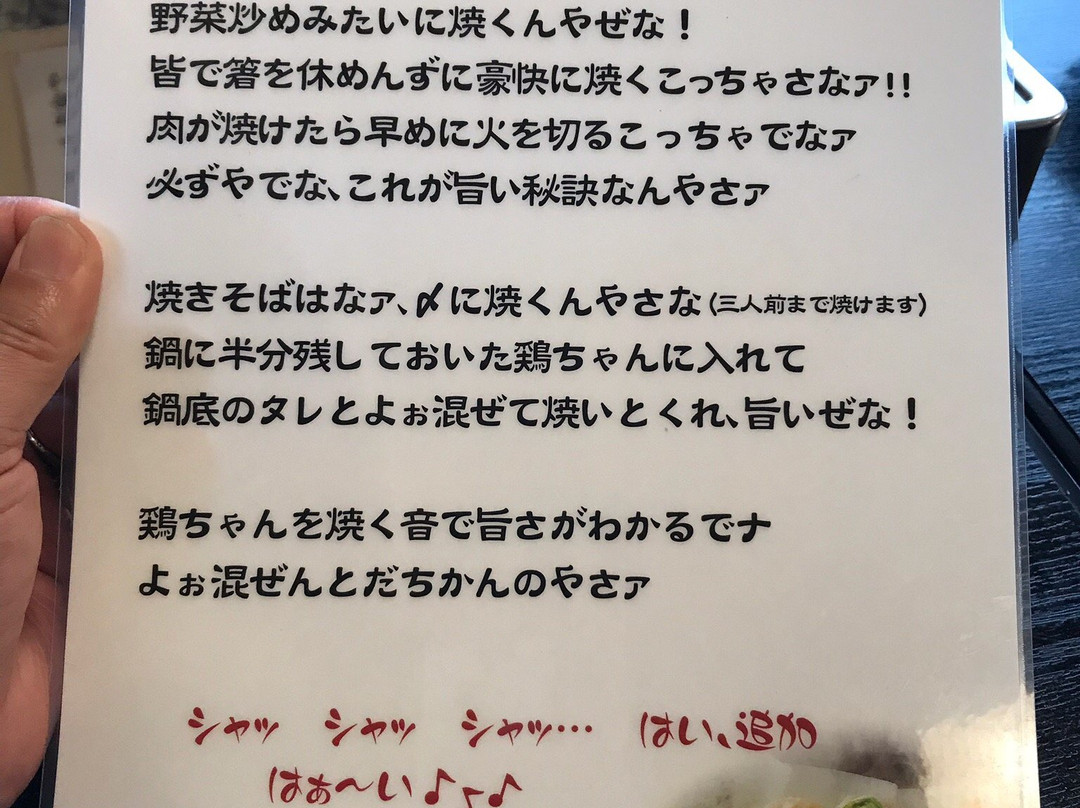 野菜炒めみたいに焼くんやぜな！
皆で箸を休めんずに豪快に焼くこっちゃさなァ!!
肉が焼けたら早めに火を切るこっちゃでなァ
必ずやでな、これが旨い秘訣なんやさァ
焼きそばはなァ、〆に焼くんやさな(三人前まで焼けます)
鍋に半分残しておいた鶏ちゃんに入れて
鍋底のタレとよぉ混ぜて焼いとくれ、旨いぜな！
鶏ちゃんを焼く音で旨さがわかるでナ
よぉ混ぜんとだちかんのやさァ
シャッ シャッ シャッ… はい、追加
はぁ〜い♪┌♪